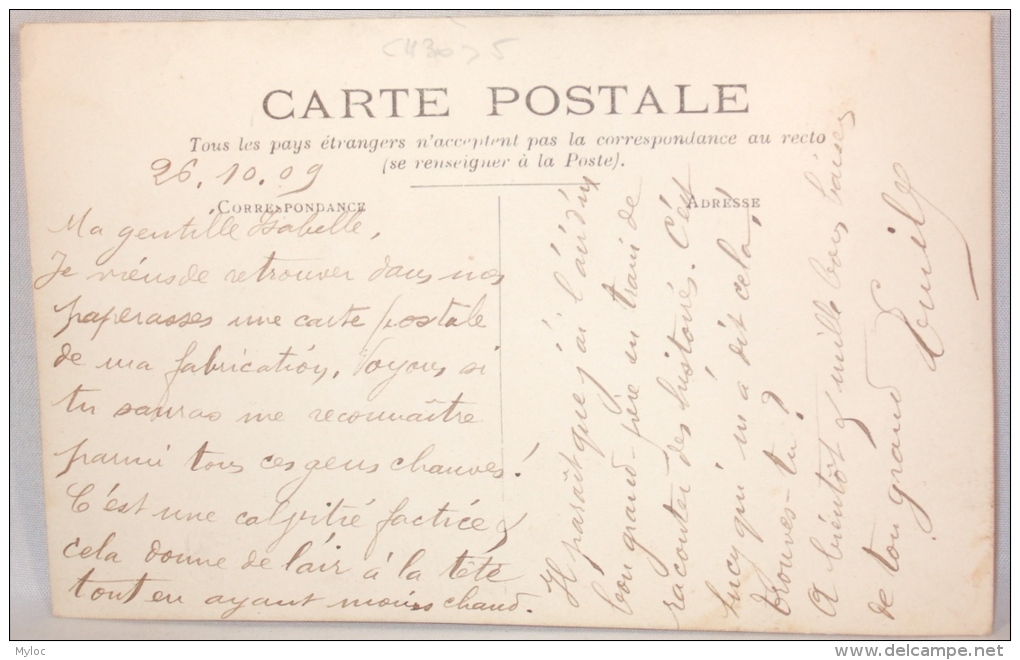 CARTE POSTALE
Tous les pays étrangers n'acceptent pas la correspondance au recto
(se renseigner à la Poste).
26.10.09
CORRESPONDANCE
ADRESSE
Ma gentille Isabelle,
Je viens de retrouver dans mes
paperasses une carte postale
de ma fabrication. Voyons si
tu sauras me reconnaître
parmi tous ces gens chauves!
C'est une calvitié factice,
cela donne de l'air à la tête
tout en ayant moins chaud.
Il paraît que j'ai l'air d'un
bon grand-père en train de
raconter des histoires. C'est
Lucy qui m'a dit cela,
trouves-tu?
A bientôt & mille bons baisers
de ton grand
Myloc
delcampe.net